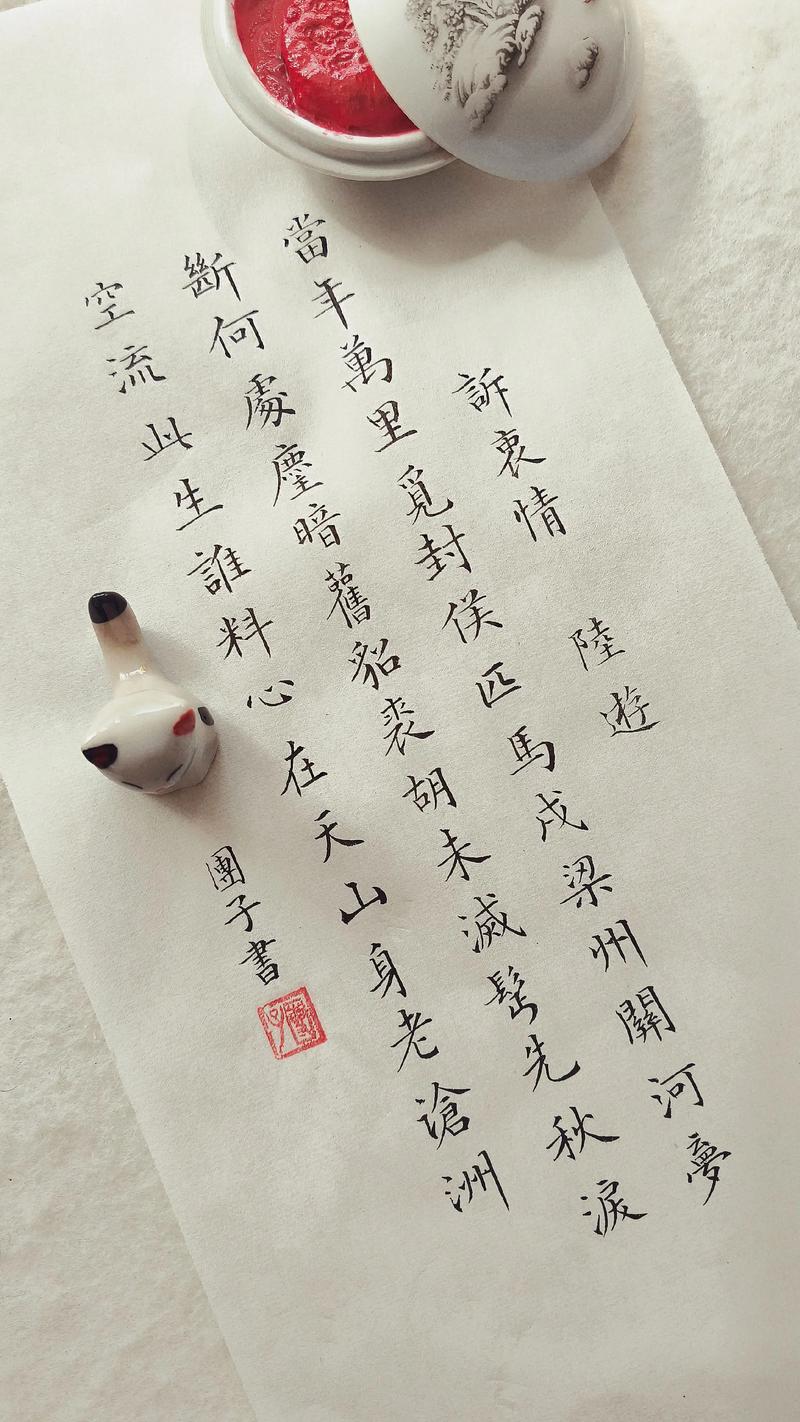 訴衷情 陸遊
當年萬里覓封侯匹馬戍梁州關河夢
斷何處塵暗舊貂裘胡未滅鬢先秋淚
空流此生誰料心在天山身老滄洲
團子書